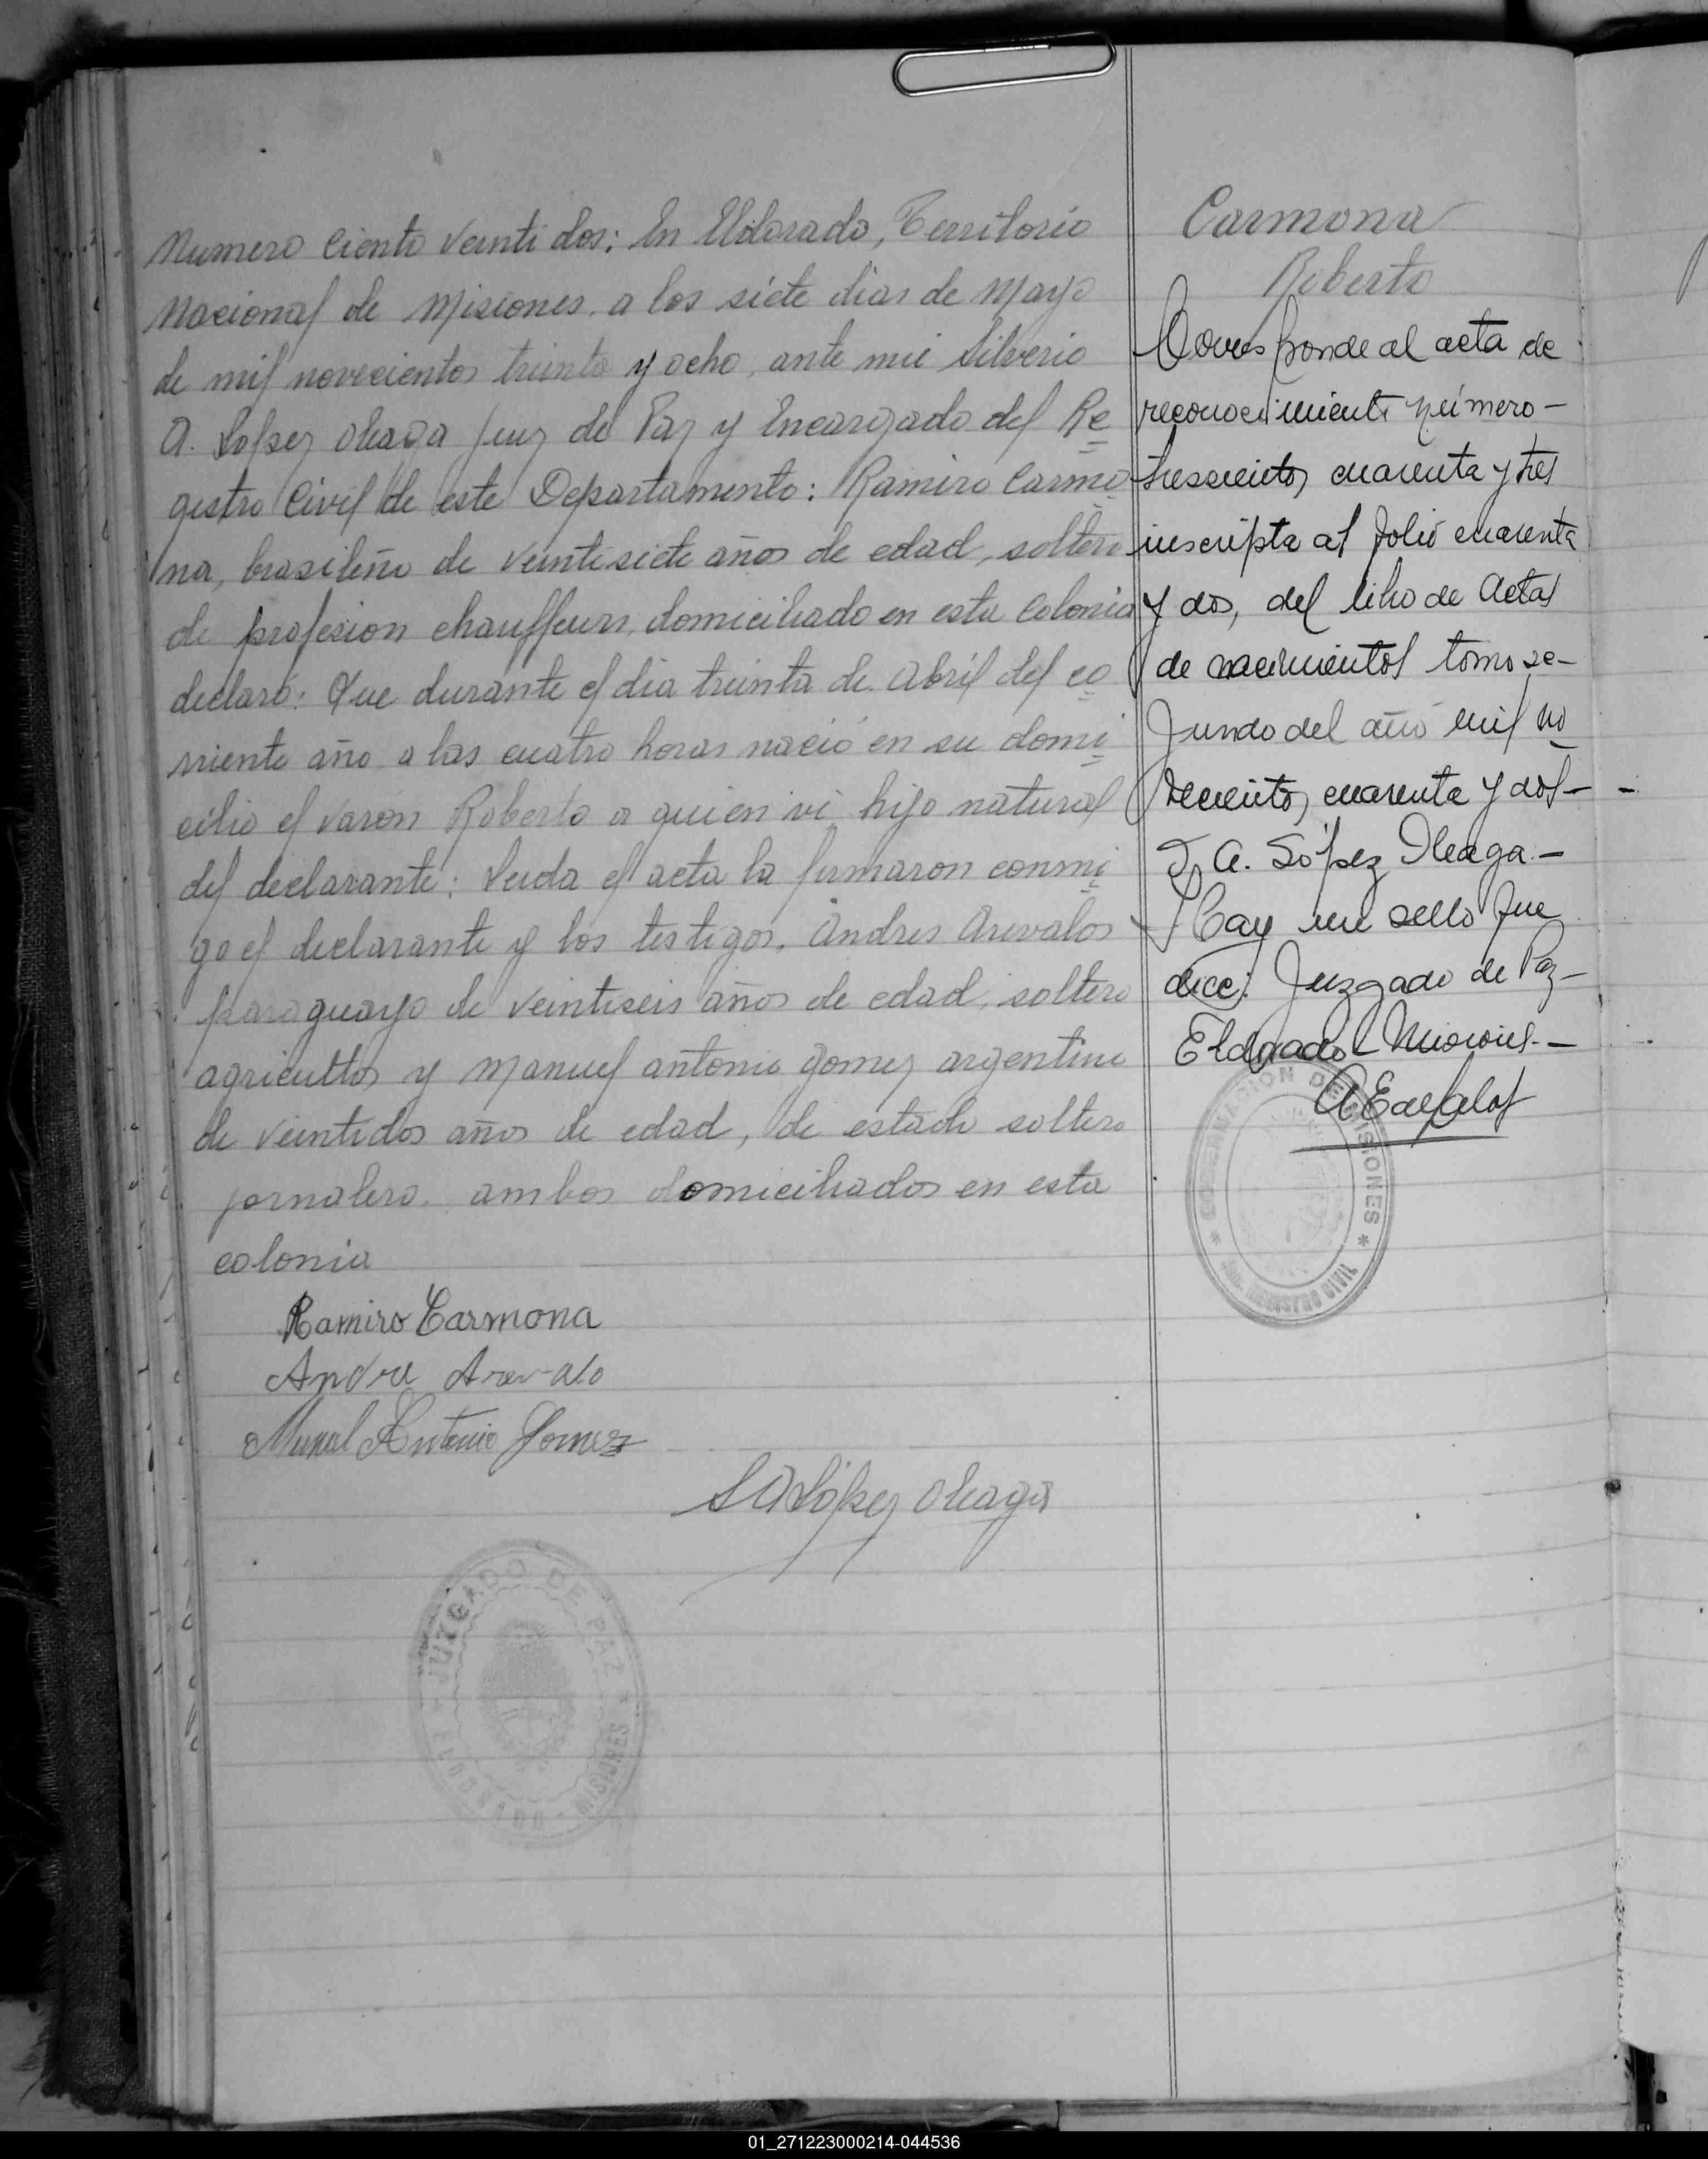 Numero Ciento Veinti dos: En Eldorado, Territorio
Nacional de Misiones, a los siete dias de Mayo
de mil novecientos treinta y ocho, ante mi Silverio
A. Lopez Oleaga Juez de Paz y Encargado del Re
gistro Civil de este Departamento: Ramiro Carmo
na, brasileño de veintisiete años de edad, soltero
de profesion chauffeurs, domiciliado en esta Colonia
declaró: Que durante el dia treinta de Abril del co
rriente año, a las cuatro horas nació en su domi
cilio el varon Roberto a quien vi, hijo natural
del declarante: Leida el acta la firmaron conmi
go el declarante y los testigos, Andres Arevalos
paraguayo de veintiseis años de edad, soltero
agricultor y Manuel Antonio Gomez argentino
de veintidos años de edad, de estado soltero
jornalero, ambos domiciliados en esta
colonia
Ramiro Carmona
Andre Arevalo
Manuel Antonio Gomez
S A López Oleaga
JUZGADO DE PAZ
ELDORADO - MISIONES
Carmona
Roberto
Corresponde al acta de
reconocimiento número -
trescientos cuarenta y tres
inscripta al folio cuarenta
y dos, del libro de Actas
de nacimientos tomo se-
gundo del año mil no
vecientos cuarenta y dos - -
S. A. López Oleaga. -
Hay un sello que
dice: Juzgado de Paz -
Eldorado - Misiones. -
GOBERNACION DE MISIONES
REGISTRO CIVIL
01_271223000214-044536